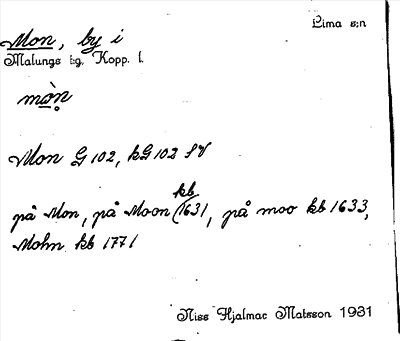 Lima s:n
Mon, by i
Malungs tg, Kopp. l.
mòṇ
Mon G 102, kG 102 SV
kb
på Mon, på Moon (1631, på moo kb 1633,
Mohn kb 1771
Niss Hjalmar Matsson 1931